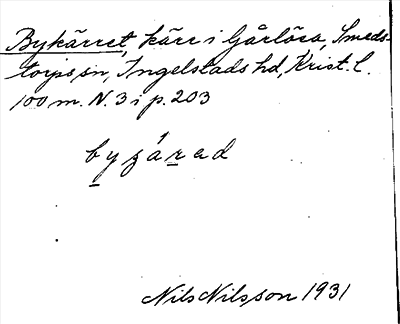 Bykärret, kärr i Gårlösa, Smeds-
torps sn, Ingelstads hd, Krist. l.
100 m. N. 3 i p. 203
byzárad
Nils Nilsson 1931